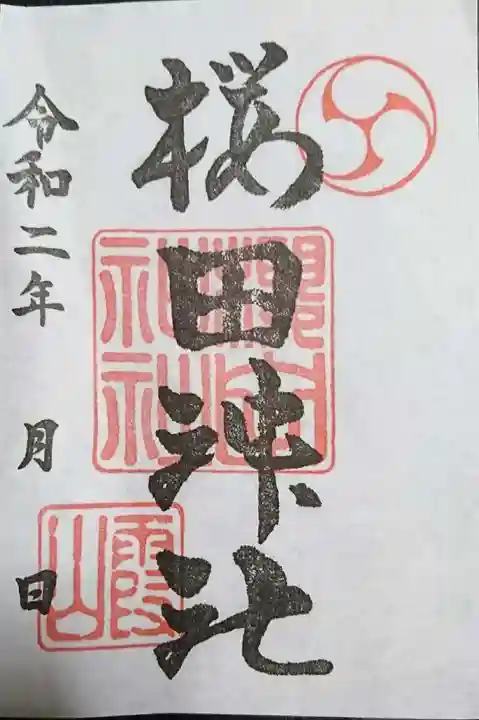 桜田神社
令和二年　月　日
霞山